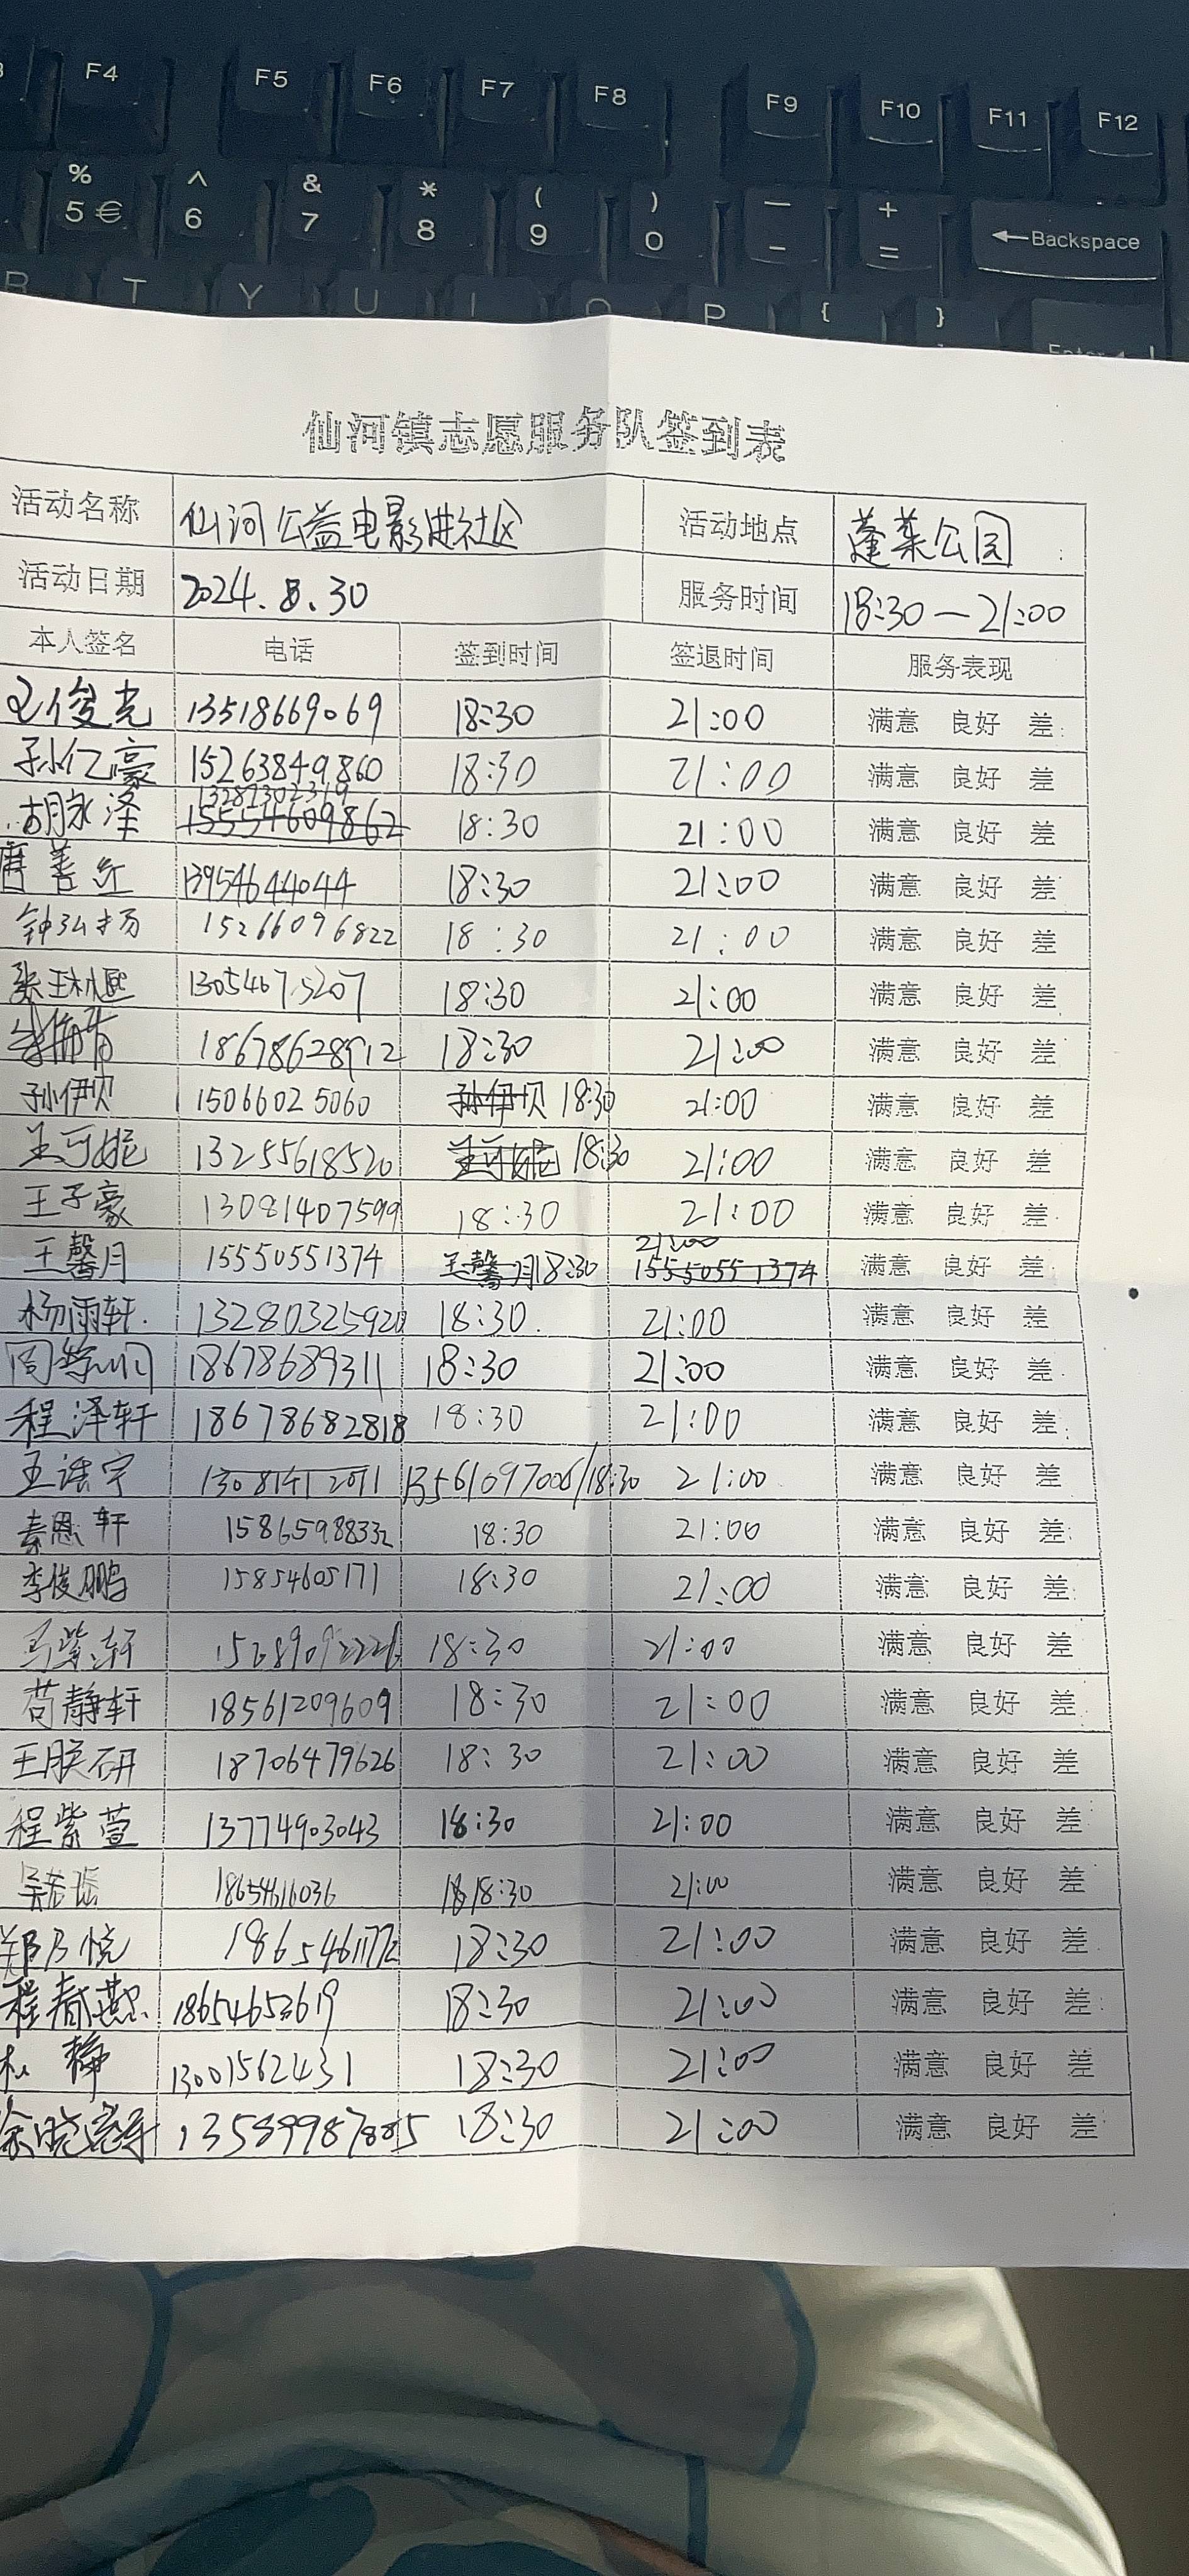 F4 F5 F6 F7 F8 F9 F10 F11 F12
% 5 € ^ 6 & 7 * 8 ( 9 ) 0 — - + = ←Backspace
R T Y U I O P { }
仙河镇志愿服务队签到表
活动名称 仙河公益电影进社区 活动地点 蓬莱公园
活动日期 2024.8.30 服务时间 18:30—21:00
本人签名 电话 签到时间 签退时间 服务表现
王俊尧 13518669069 18:30 21:00 满意 良好 差
孙亿豪 15263849860 18:30 21:00 满意 良好 差
胡家泽 15554609862 18:30 21:00 满意 良好 差
13954644044 18:30 21:00 满意 良好 差
钟弘扬 15266096822 18:30 21:00 满意 良好 差
18:30 21:00 满意 良好 差
18678628912 18:30 21:00 满意 良好 差
孙伊贝 15066025060 孙伊贝 18:30 21:00 满意 良好 差
王可妮 13255618520 王可妮 18:30 21:00 满意 良好 差
王子豪 13081407599 18:30 21:00 满意 良好 差
王馨月 15550551374 王馨月 18:30 21:00 15550551374 满意 良好 差
杨雨轩 13280325920 18:30 21:00 满意 良好 差
18678689311 18:30 21:00 满意 良好 差
程泽轩 18678682818 18:30 21:00 满意 良好 差
13081412011 13561097006 18:30 21:00 满意 良好 差
秦恩轩 15865988332 18:30 21:00 满意 良好 差
李俊鹏 15854605171 18:30 21:00 满意 良好 差
马紫轩 18:30 21:00 满意 良好 差
苟静轩 18561209609 18:30 21:00 满意 良好 差
王朕研 18706479626 18:30 21:00 满意 良好 差
程紫萱 13774903043 18:30 21:00 满意 良好 差
18654616036 18:30 21:00 满意 良好 差
郑乃悦 18654611772 18:30 21:00 满意 良好 差
程春燕 18654653619 18:30 21:00 满意 良好 差
静 13001562431 18:30 21:00 满意 良好 差
13589987885 18:30 21:00 满意 良好 差